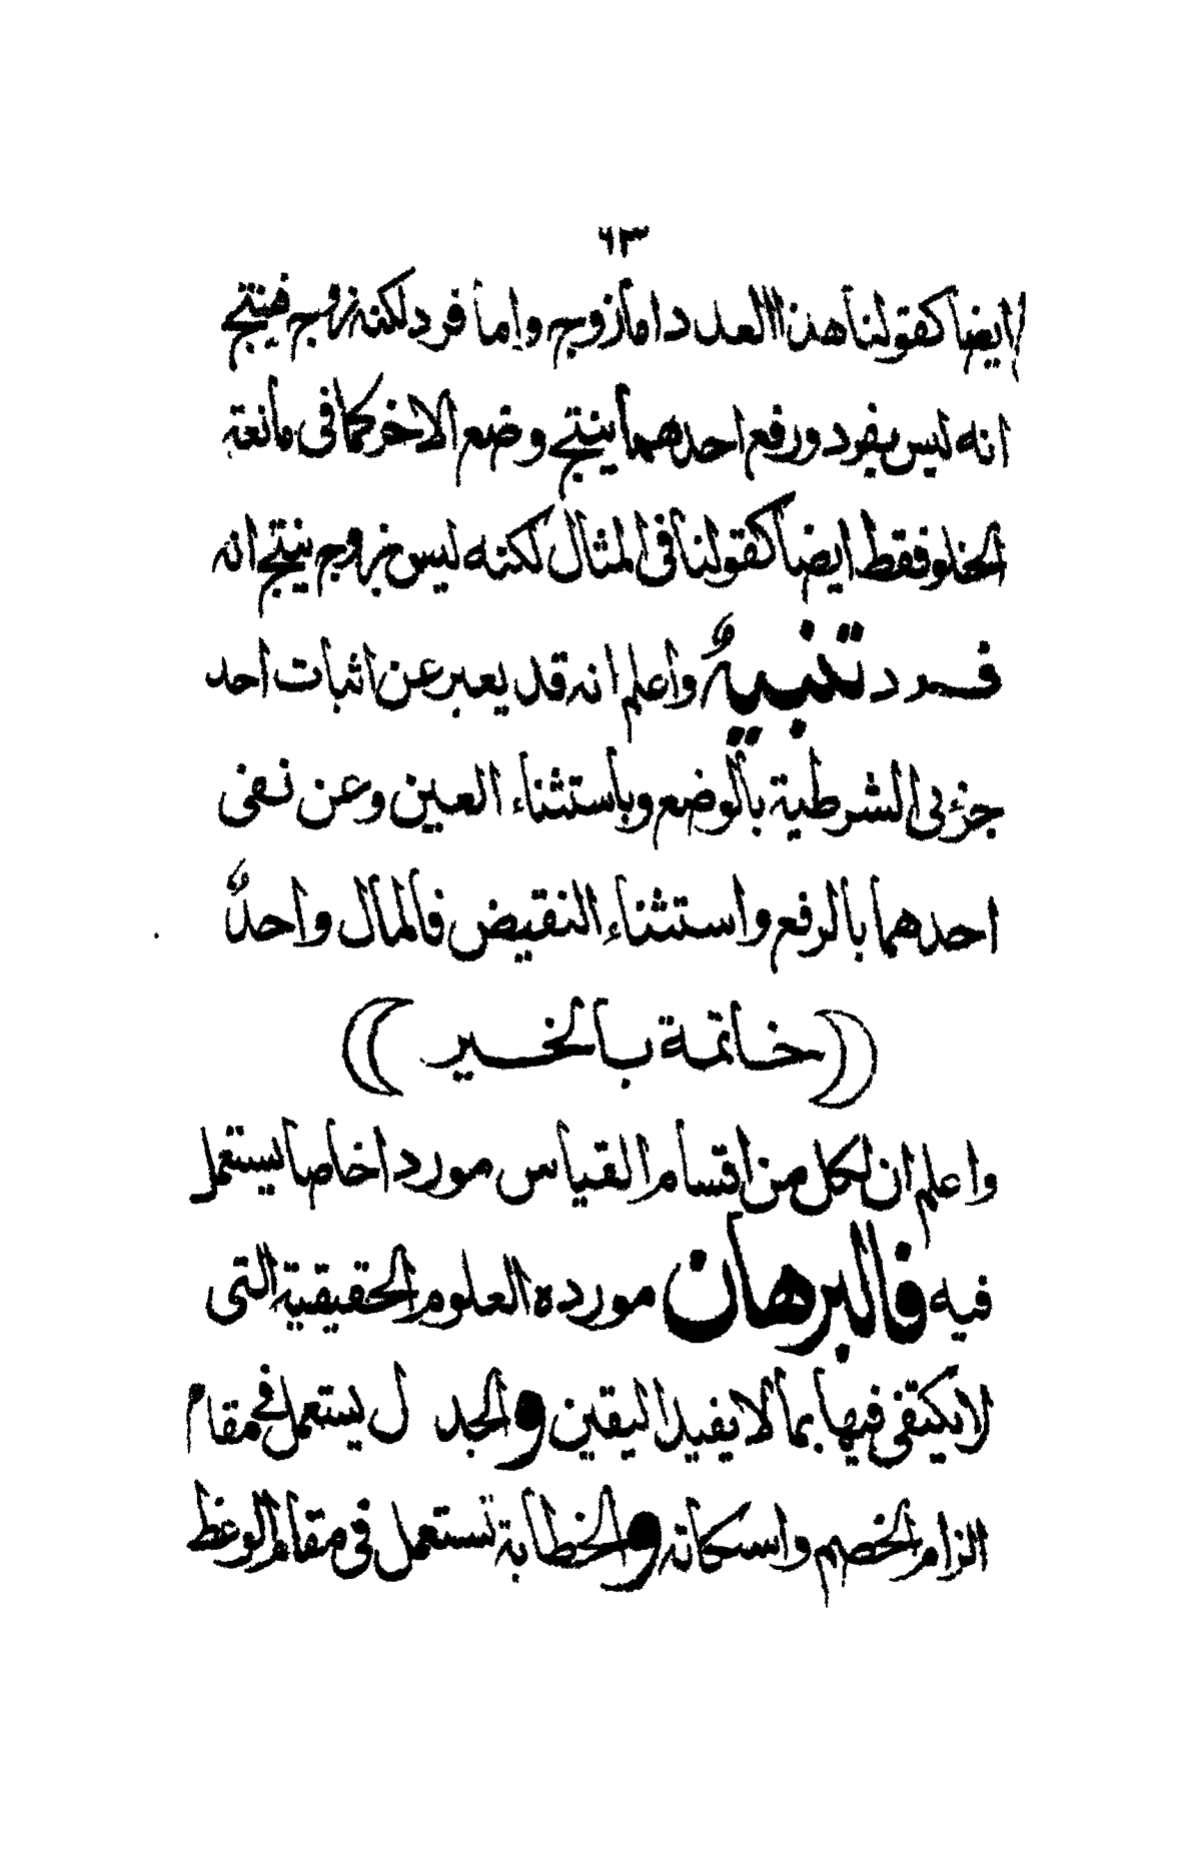 ٦٣
ايضا كقولنا هذا العدد اما زوج واما فرد لكنه زوج فينتج
انه ليس بفرد ورفع احدهما ينتج وضع الاخر كما فى مانعة
الخلو فقط ايضا كقولنا فى المثال لكنه ليس بزوج ينتج انه
فرد تنبيهٌ واعلم انه قد يعبر عن اثبات احد
جزئى الشرطية بالوضع وباستثناء العين وعن نفى
احدهما بالرفع واستثناء النقيض فالمال واحدٌ
((خاتمة بالخير))
واعلم ان لكل من اقسام القياس موردا خاصا يستعمل
فيه فالبرهان مورده العلوم الحقيقية التى
لا يكتفى فيها بما لا يفيد اليقين والجدل يستعمل فى مقام
الزام الخصم واسكاته والخطابة تستعمل فى مقام الوعظ